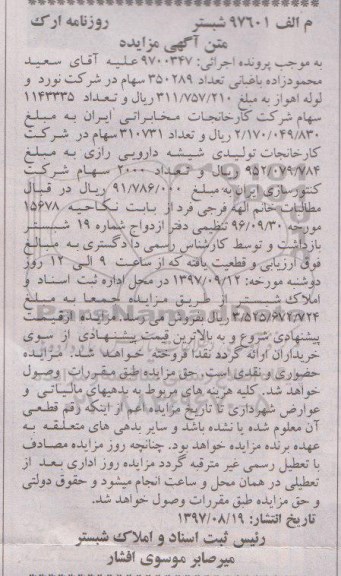 م الف ۹۷۶۰۱ شبستر روزنامه ارک
متن آگهی مزایده
به موجب پرونده اجرائی: ۹۷۰۰۳۴۷ علیه آقای سعید
محمودزاده باغبانی تعداد ۳۵۰۲۸۹ سهام در شرکت نورد و
لوله اهواز به مبلغ ۳۱۱/۷۵۷/۲۱۰ ریال و تعداد ۱۱۴۳۳۳۵
سهام شرکت کارخانجات مخابراتی ایران به مبلغ
۲/۱۷۰/۰۴۹/۸۳۰ ریال و تعداد ۳۱۰۷۳۱ سهام در شرکت
کارخانجات تولیدی شیشه دارویی رازی به مبلغ
۹۵۲/۰۷۹/۷۸۴ ریال و تعداد ۲۰۰۰ سهام شرکت
کنتورسازی ایران به مبلغ ۹۱/۷۸۶/۰۰۰ ریال در قبال
مطالبات خانم الهه فرجی فرد از بابت نکاحیه ۱۵۶۷۸
مورخه ۹۶/۰۹/۳۰ تنظیمی دفتر ازدواج شماره ۱۹ شبستر
بازداشت و توسط کارشناس رسمی دادگستری به مبالغ
فوق ارزیابی و قطعیت یافته که از ساعت ۹ الی ۱۲ روز
دوشنبه مورخه: ۱۳۹۷/۰۹/۱۲ در محل اداره ثبت اسناد و
املاک شبستر از طریق مزایده جمعا به مبلغ
۳/۵۲۵/۶۷۲/۷۲۴ ریال بفروش می رسد. مزایده از قیمت
پیشنهادی شروع و به بالاترین قیمت پیشنهادی از سوی
خریداران ارائه گردد نقدا فروخته خواهد شد. مزایده
حضوری و نقدی است. حق مزایده طبق مقررات وصول
خواهد شد. کلیه هزینه های مربوط به بدهیهای مالیاتی و
عوارض شهرداری تا تاریخ مزایده اعم از اینکه رقم قطعی
آن معلوم شده یا نشده باشد و سایر بدهی های متعلقه به
عهده برنده مزایده خواهد بود. چنانچه روز مزایده مصادف
با تعطیل رسمی غیر مترقبه گردد مزایده روز اداری بعد از
تعطیلی در همان محل و ساعت انجام میشود و حقوق دولتی
و حق مزایده طبق مقررات وصول خواهد شد.
تاریخ انتشار: ۱۳۹۷/۰۸/۱۹
رئیس ثبت اسناد و املاک شبستر
میرصابر موسوی افشار